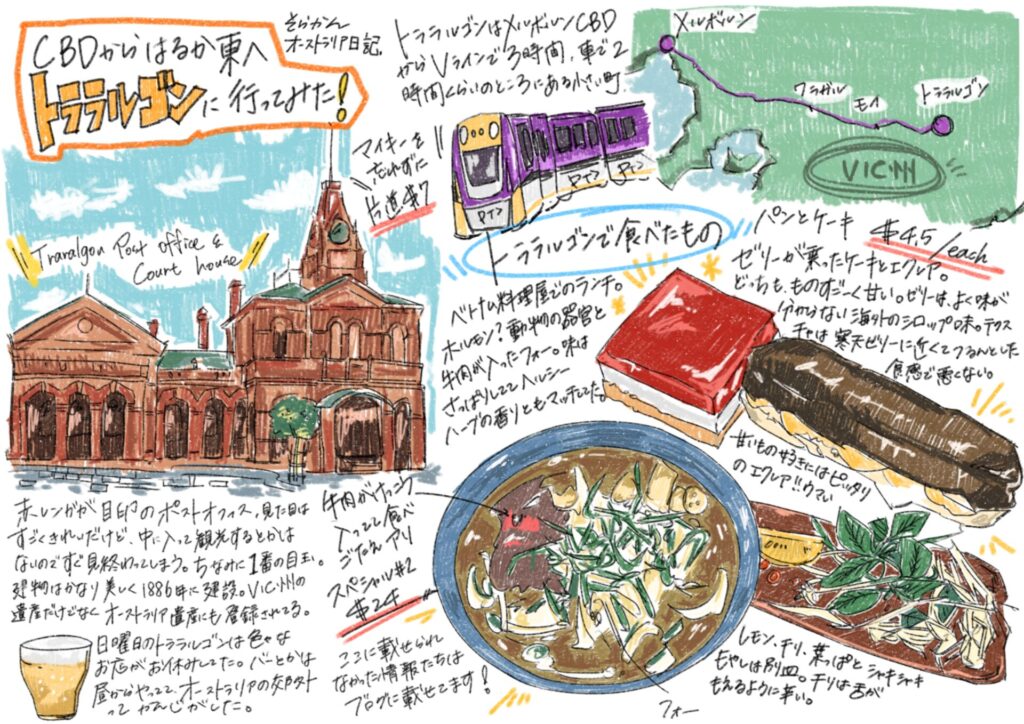 CBDからはるか東へ
トララルゴンに行ってみた!
そらかん
オーストラリア日記
トララルゴンはメルボルンCBD
からVラインで3時間、車で2
時間くらいのところにある小さい町
マイキーを
忘れずに
片道$7
PTV
PTV
PTV
メルボルン
ワラガル
モイ
トララルゴン
VIC州
Traralgon Post office &
Court house
トララルゴンで食べたもの
ベトナム料理屋でのランチ。
ホルモン?動物の器官と
牛肉が入ったフォー。味は
さっぱりしててヘルシー
ハーブの香りともマッチしてた。
パンとケーキ
$4.5/each
ゼリーが乗ったケーキとエクレア。
どっちも、ものすごーく甘い。ゼリーは、よく味が
分からない海外のシロップ味。テクス
チャは寒天ゼリーに近くてつるんとした
食感で悪くない。
甘いもの好きにはピッタリ
のエクレア!!ウマい
牛肉がけっこう
入ってて食べ
ごたえアリ
スペシャル#2
$24
赤レンガが目印のポストオフィス。見た目は
すごくきれいだけど、中に入って観光するとかは
ないのですぐ見終わってしまう。ちなみに1番の目玉。
建物はかなり美しく1886年に建設。VIC州の
遺産だけどなくオーストラリア遺産にも登録されてる。
日曜日のトララルゴンは色々な
お店がお休みしてた。バーとかは
昼からやってて、オーストラリアの郊外
ってかんじがした。
ここに載せられ
なかった情報たちは
ブログに載せてます!
フォー
レモン、チリ、葉っぱとシャキシャキ
もやしは別皿。チリは舌が
もえるように辛い。